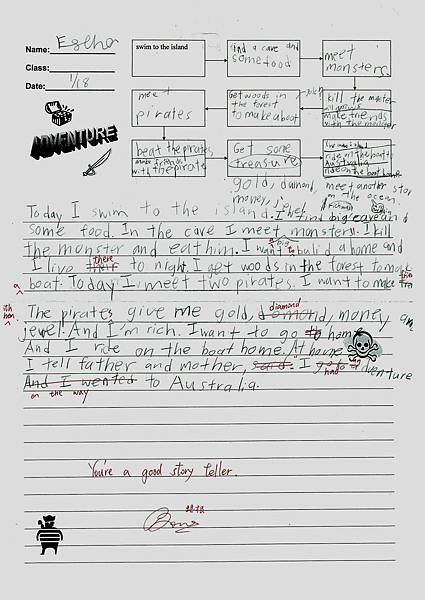 Name: Esther
Class:
Date: 1/18
ADVENTURE
swim to the island
find a cave and
some food
meet
monsters
meet
pirates
Get woods in
the forest
to make a boat
kill the monster
make friends
with the monster
beat the pirates
make friends
with the pirate
Get some
treasure
gold, diamond,
money, jewel
ride on the boat to
Australia
ride on the boat home
meet another story
on the ocean.
Today I swim to the island. I find big cave and
some food. In the cave I meet monster. I kill
the monster and eat him. I want to build a home and
I live there to night. I get woods in the forest to make
a boat. Today I meet two pirates. I want to make
The pirates give me gold, diamond, money, and
jewel. And I'm rich. I want to go home
And I ride on the boat home. At home
I tell father and mother, said. I had an adventure
And I wented to Australia.
on the way
You're a good story teller.